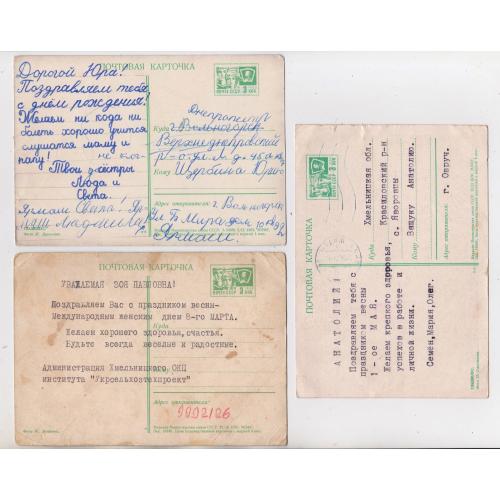 ПОЧТОВАЯ КАРТОЧКА
Дорогой Юра!
Поздравляем тебя
с днём рождения!
Желаем ни кода ни
болеть хорошо учится
слушатся маму и
папу!
Твои сёстры
Люда и
Света.
ПОЧТА СССР 3 КОП
Куда
Верхнеднепровский
Кому Щербина Юрию
Адрес отправителя:
ПОЧТОВАЯ КАРТОЧКА
УВАЖАЕМАЯ ЗОЯ ПАВЛОВНА!
Поздравляем Вас с праздником весны-
Международным женским днем 8-го МАРТА.
Желаем хорошего здоровья, счастья.
Будьте всегда веселые и радостные.
Администрация Хмельницкого ОКЦ
института "Укрсельхозтехпроект"
Адрес отправителя:
9992/26
ПОЧТОВАЯ КАРТОЧКА
АНАТОЛИЙ!
Поздравляем тебя с
праздником весны
1-ое МАЯ.
Желаем крепкого здоровья,
успехов в работе и
личной жизни.
Семен, Мария, Олег.
Куда
Хмельницкая обл.
Красиловский р-н
с. Яворовцы
Кому
Ващуку Анатолию.
Адрес отправителя:
г. Овруч.